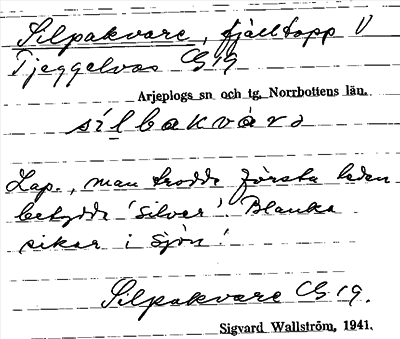 Silpakvare, fjälltopp V
Tjeggelvas C G 19
Arjeplogs sn och tg, Norrbottens län.
silbakvárə
Lap., man trodde första leden
betydde 'silver'. Blanka
sikar i sjön!
Silpakvare C G 19.
Sigvard Wallström, 1941.